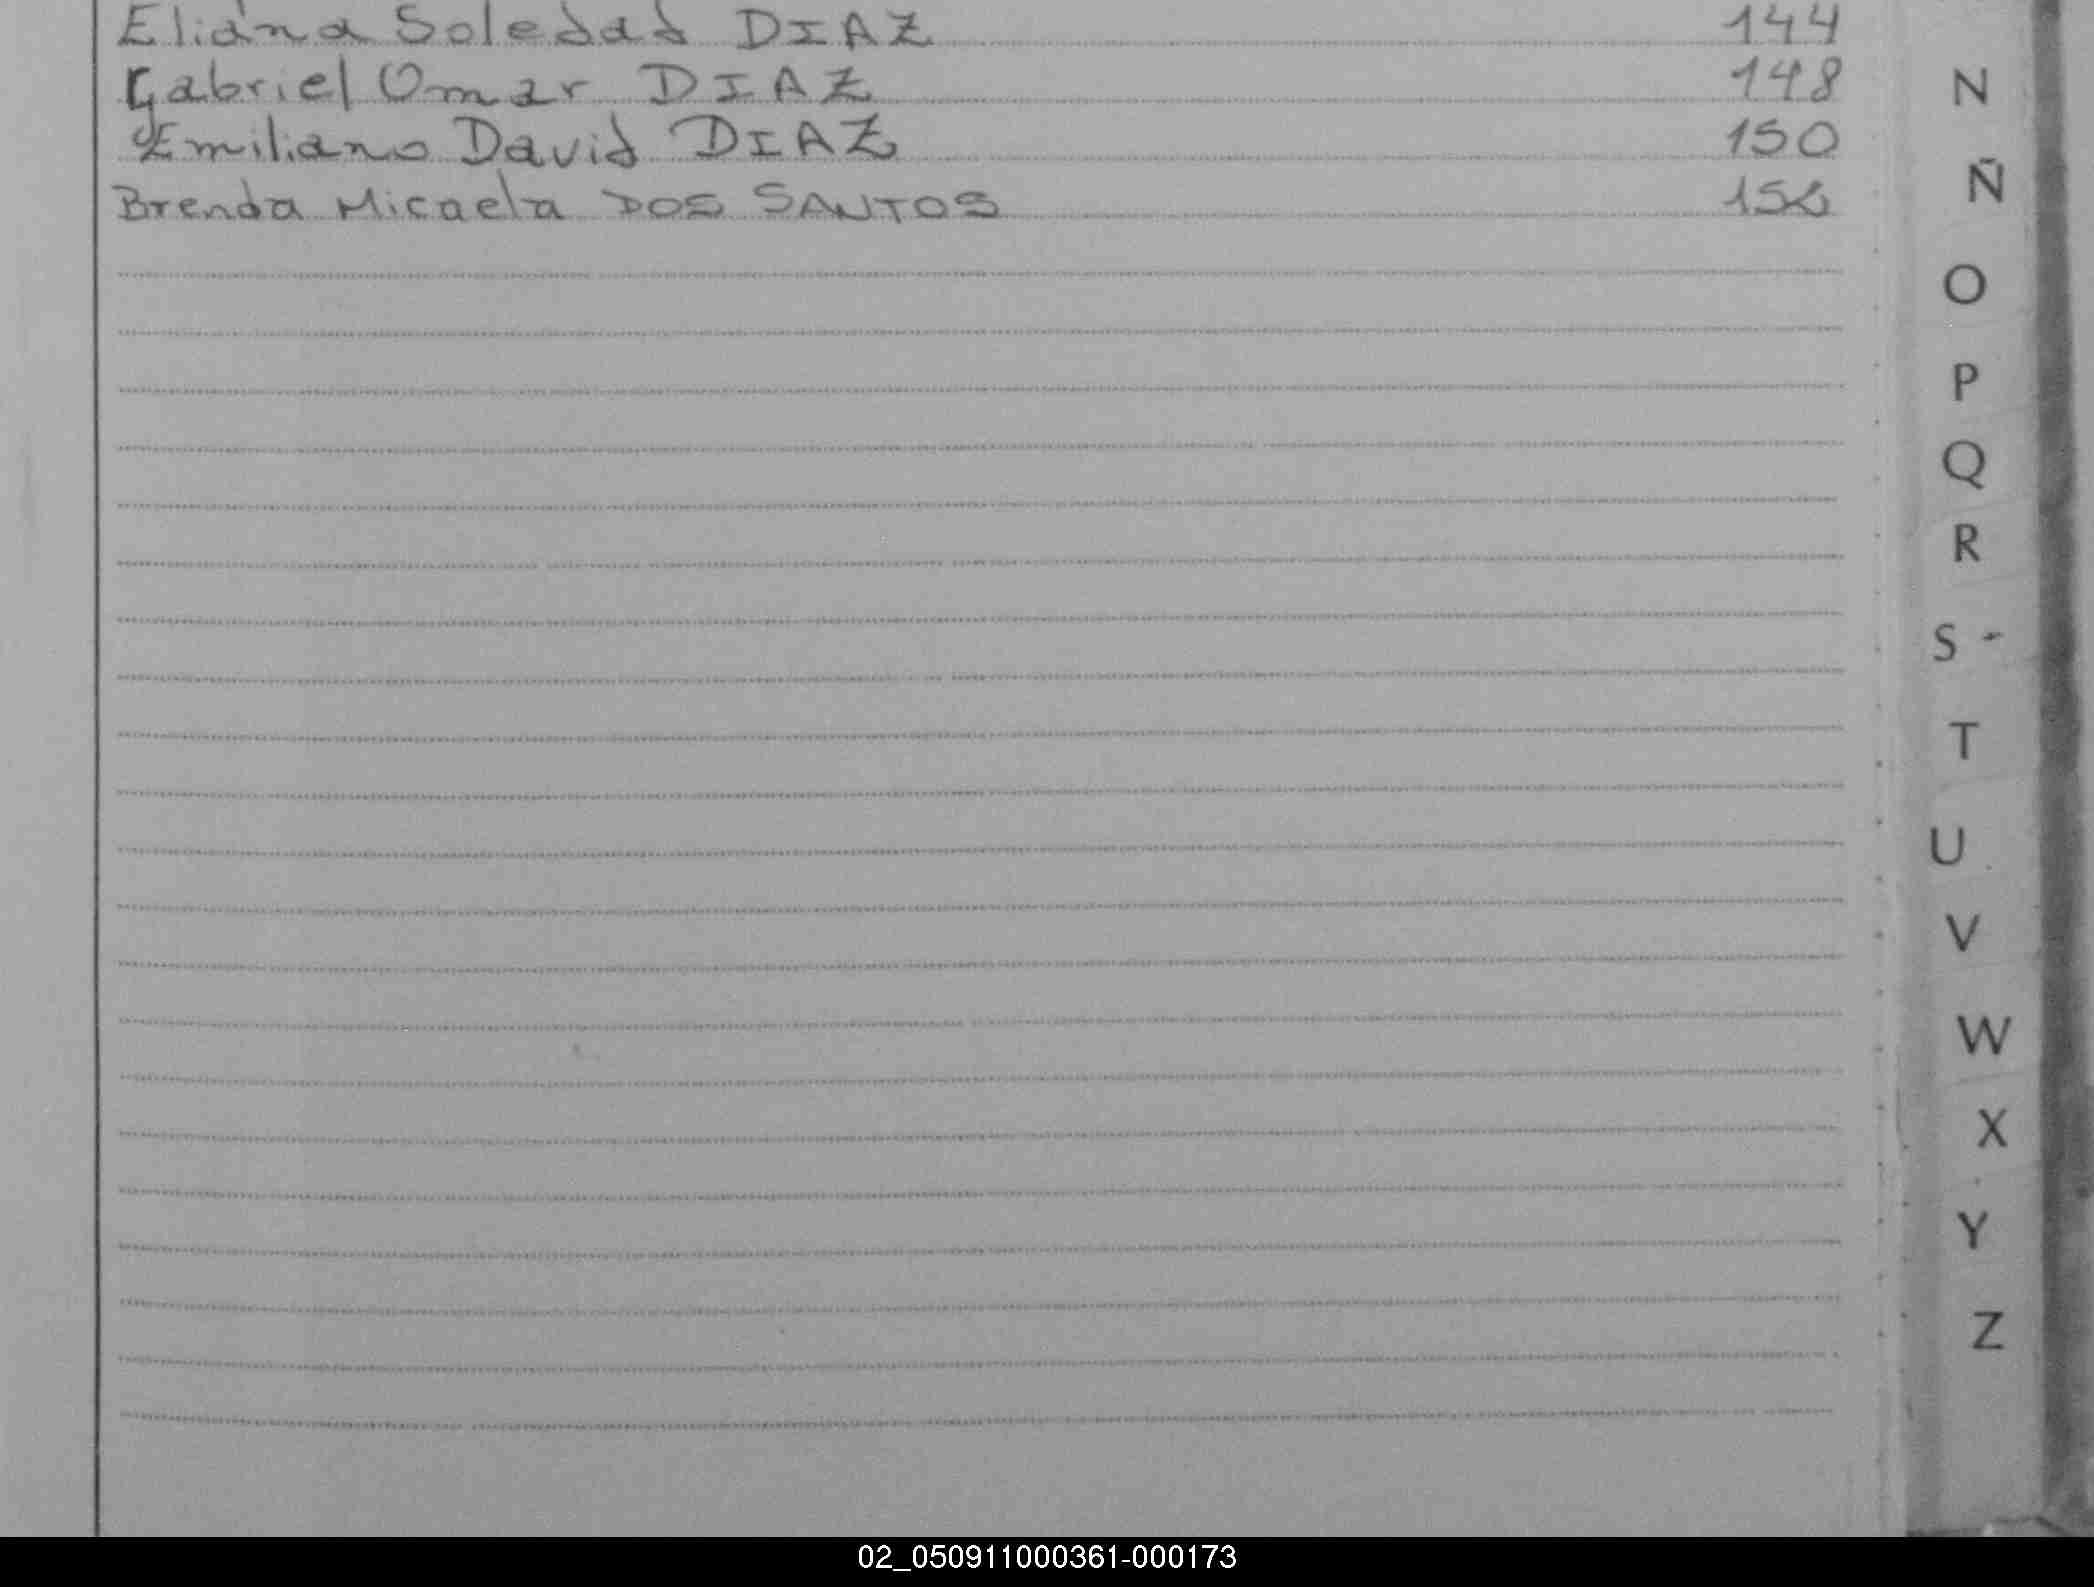 Eliana Soledad DIAZ 144
Gabriel Omar DIAZ 148
Emiliano David DIAZ 150
Brenda Micaela DOS SANTOS
N
Ñ
O
P
Q
R
S -
T
U
V
W
X
Y
Z
02_050911000361-000173